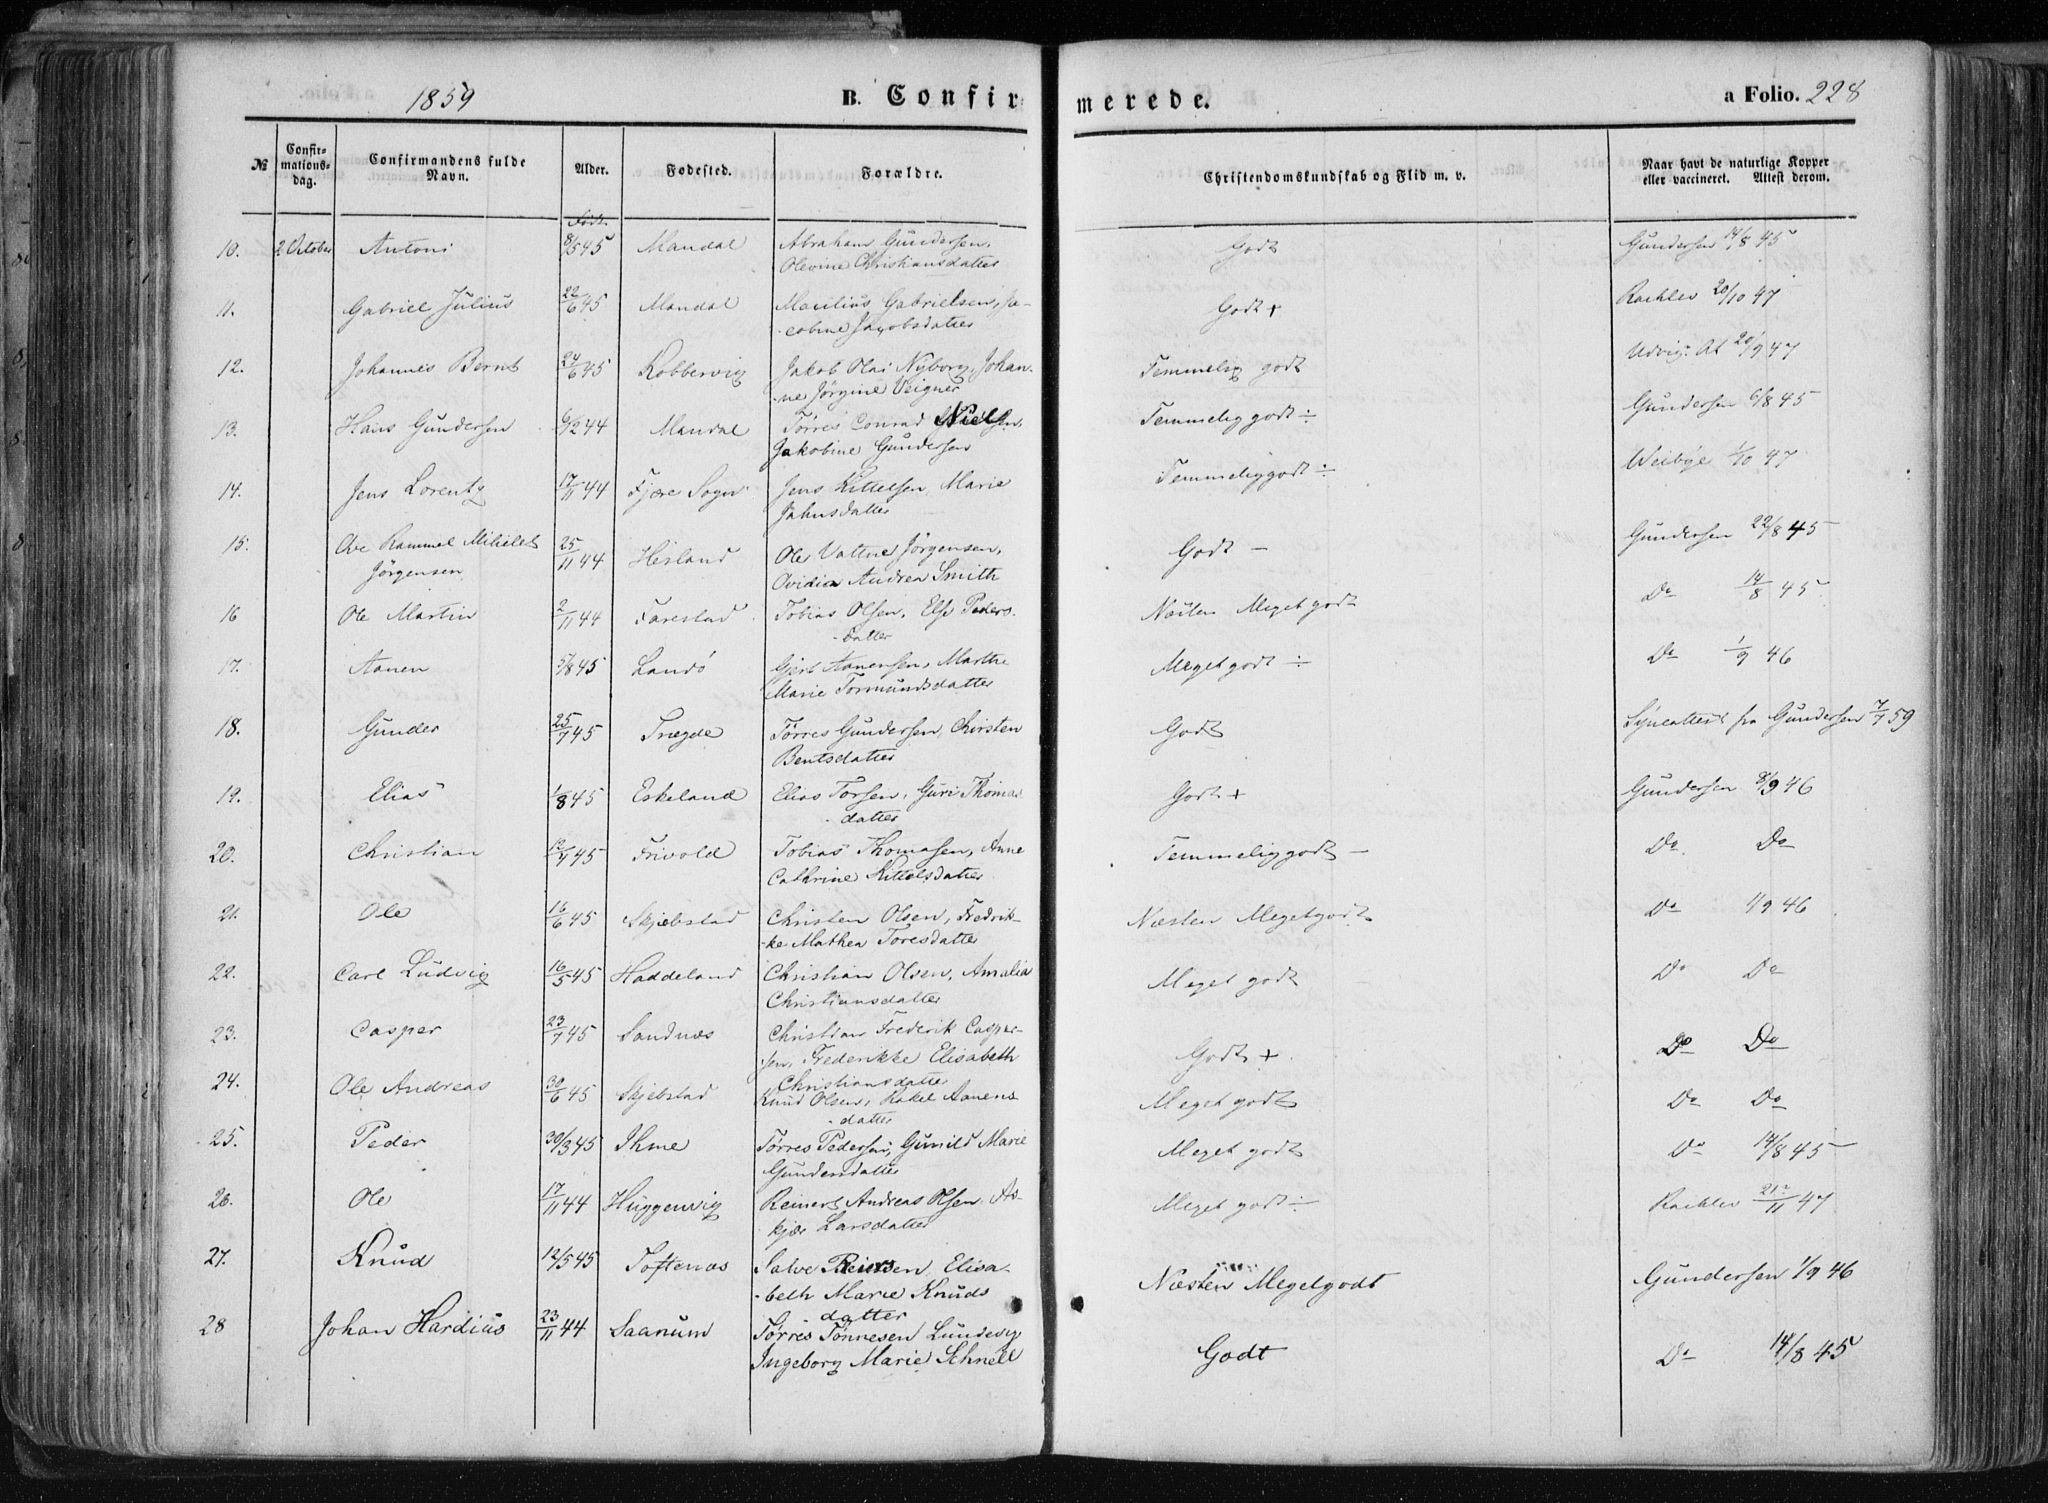 1859 B. Confirmerede. a Folio. 228
№ Confirmationsdag. Confirmandens fulde Navn. Alder. Fødested. Forældre. Christendomskundskab og Flid m. v. Naar havt de naturlige Kopper eller vaccineret. Attest derom.
Født
10. 2 October Antoni 8/5 45 Mandal Abraham Gundersen, Godt Gundersen 14/8 45
Olevine Christiansdatter
11. Gabriel Julius 22/6 45 Mandal Gabrielsen, Ja- Godt + 20/10 47
cobine Jacobsdatter
12. Johannes Bernt 24/6 45 Kobbervig Jakob Olai Nyborg, Johan- Temmelig godt 20/9 47
ne Jørgine Veigner
13. Hans Gundersen 6/12 44 Mandal Tørres Conrad Nielsen, Temmelig godt ÷ Gundersen 6/8 45
Jakobine Gundersen
14. Jens Lorentz 17/11 44 Fjære Sogn Jens Kittelsen, Marie Temmelig godt ÷ Weibye 1/10 47
Jahnsdatter
15. Ove Rammel Jørgensen 25/11 44 Hesland Ole Vattne Jørgensen, Godt - Gundersen 22/8 45
Ovidia Andrea Smith
16 Ole Martin 2/11 44 Farestad Tobias Olsen, Else Peders- Næsten Meget godt Do 14/8 45
datter
17. Aanen 5/8 45 Landø Gjert Aanensen, Marthe Meget godt ÷ Do 1/9 46
Marie Tormundsdatter
18. Gunder 25/7 45 Trægde Tørres Gundersen, Chirsten Godt Syneattest fra Gundersen 7/7 59
Bentsdatter
19. Elias 1/8 45 Eskeland Elias Torsen, Guri Thomas Godt + Gundersen 8/9 46
datter
20. Christian 12/7 45 Frivold Tobias Thomasen, Anne Temmelig godt - Do. Do
Cathrine Kittelsdatter
21. Ole 16/6 45 Skjebstad Christen Olsen, Fredrik- Næsten Meget godt Do 1/9 46
ke Mathea Toresdatter
22. Carl Ludvig 16/5 45 Haddeland Christian Olsen, Amalia Meget godt Do Do
Christiansdatter
23. Casper 23/7 45 Sandnæs Christian Frederik Casper- Godt + Do Do
sen, Frederikke Elisabeth
Christiansdatter
24. Ole Andreas 30/6 45 Skjebstad Knud Olsen, Rakel Aanens Meget godt Do Do
datter
25. Peder 30/3 45 Ihme Tørres Pedersen, Gunild Marie Meget godt Do 14/8 45
Gundersdatter
26. Ole 17/11 44 Huggenvig Reinert Andreas Olsen, As- Meget godt ÷ 47
kjær Larsdatter
27. Knud 12/5 45 Toftenæs Salve Reiersen, Elisa- Næsten Meget godt Gundersen 1/9 46
beth Marie Knuds
datter
28 Johan Hardius 23/11 44 Saanum Tørres Tønnesen Lundevig Godt Do 14/8 45
Ingeborg Marie Schnell